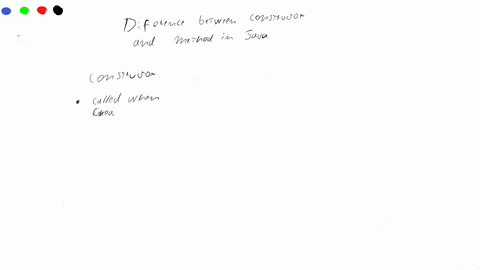 Difference between constructor
and method in Java
constructor
• called when